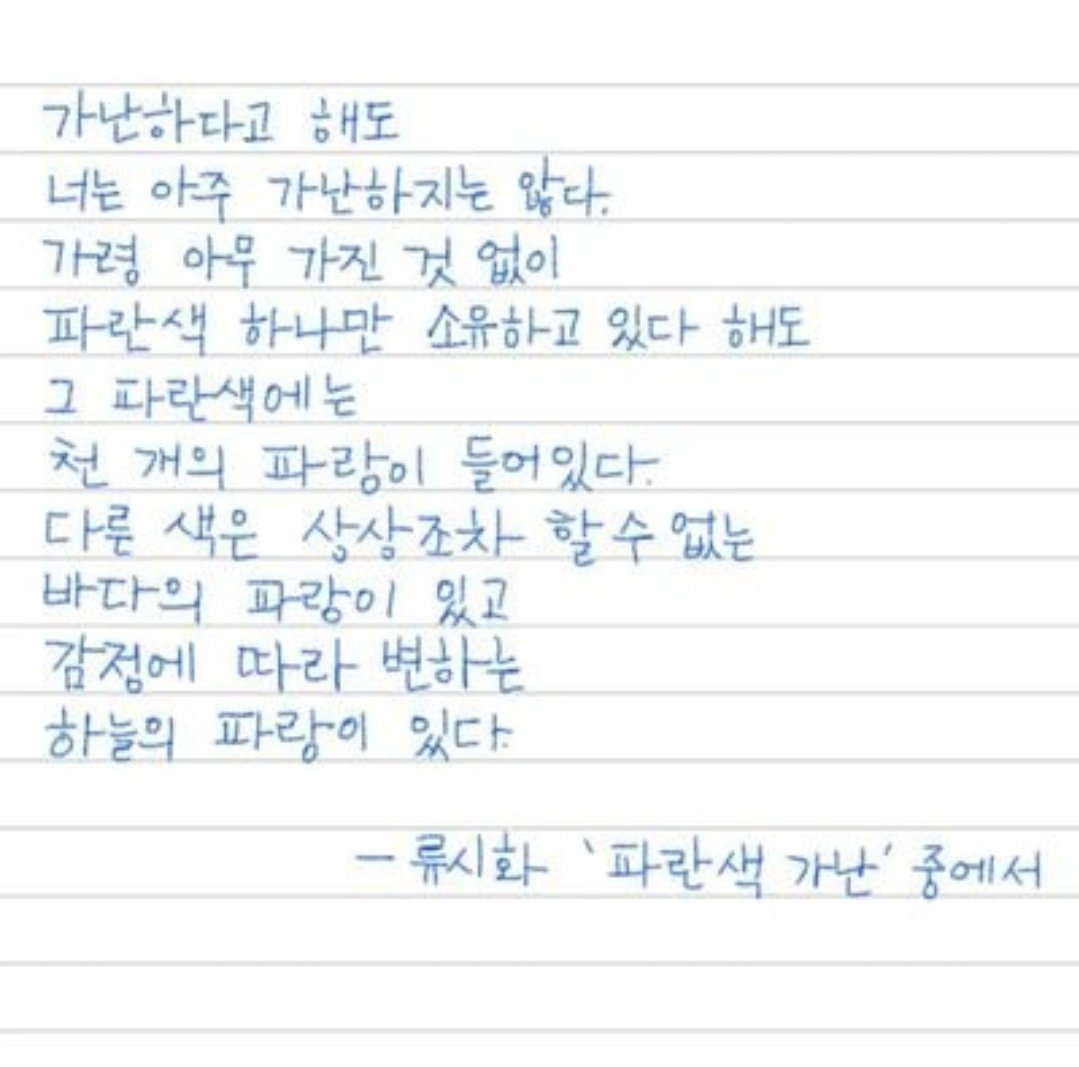 가난하다고 해도
너는 아주 가난하지는 않다.
가령 아무 가진 것 없이
파란색 하나만 소유하고 있다 해도
그 파란색에는
천 개의 파랑이 들어있다.
다른 색은 상상조차 할 수 없는
바다의 파랑이 있고
감정에 따라 변하는
하늘의 파랑이 있다.
- 류시화 '파란색 가난' 중에서